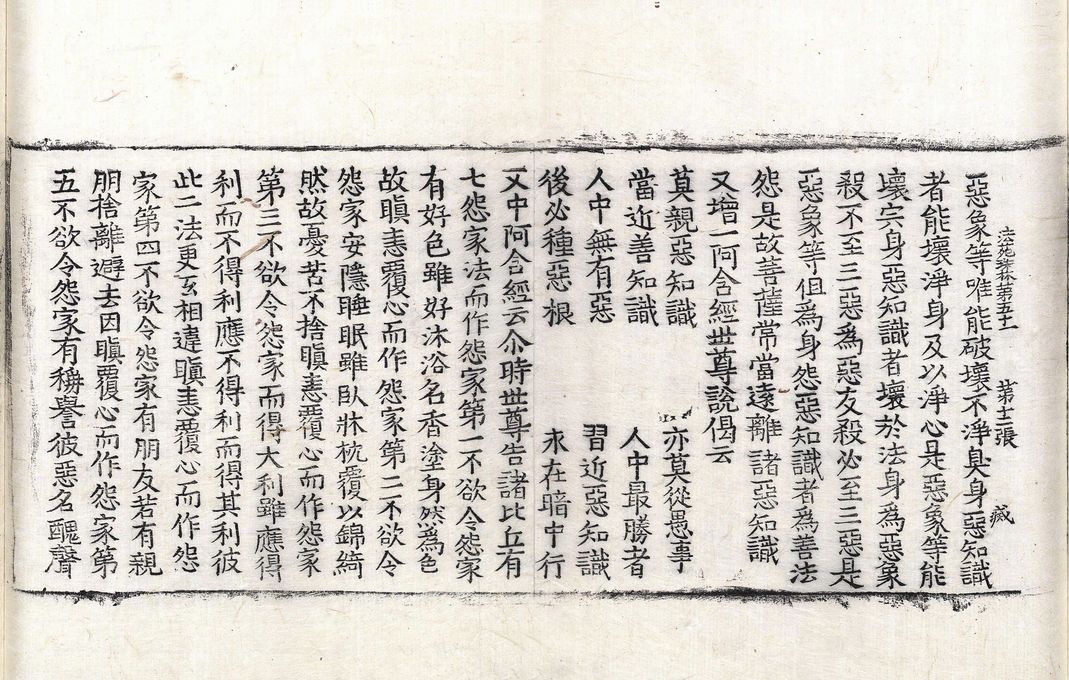 法苑珠林第五十一 第十二張 臧
惡象等唯能破壞不淨臭身惡知識
者能壞淨身及以淨心是惡象等能
壞宍身惡知識者壞於法身爲惡象
殺不至三惡爲惡友殺必至三惡是
惡象等但爲身怨惡知識者爲善法
怨是故菩薩常當遠離諸惡知識
又增一阿含經世尊說偈云
莫親惡知識 亦莫從愚事
當近善知識 人中最勝者
人中無有惡 習近惡知識
後必種惡根 永在暗中行
又中阿含經云尒時世尊告諸比丘有
七怨家法而作怨家第一不欲令怨家
有好色雖好沐浴名香塗身然爲色
故瞋恚覆心而作怨家第二不欲令
怨家安隱睡眠雖臥牀枕覆以錦綺
然故憂苦不捨瞋恚覆心而作怨家
第三不欲令怨家而得大利雖應得
利而不得利應不得利而得其利彼
此二法更互相違瞋恚覆心而作怨
家第四不欲令怨家有朋友若有親
朋捨離避去因瞋覆心而作怨家第
五不欲令怨家有稱譽彼惡名醜聲